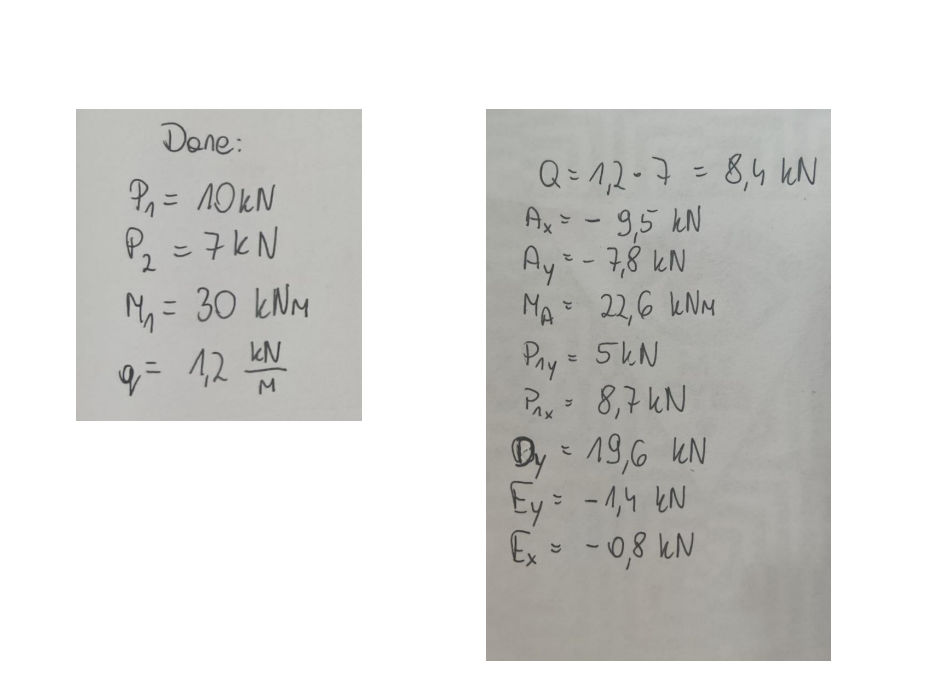 Dane:
P₁ = 10kN
P₂ = 7kN
M₁ = 30 kNm
q = 1,2 kN/m
Q = 1,2 · 7 = 8,4 kN
Aₓ = - 9,5 kN
Aᵧ = - 7,8 kN
M_A = 22,6 kNm
P₁ᵧ = 5kN
P₁ₓ = 8,7kN
Dᵧ = 19,6 kN
Eᵧ = -1,4 kN
Eₓ = -0,8 kN